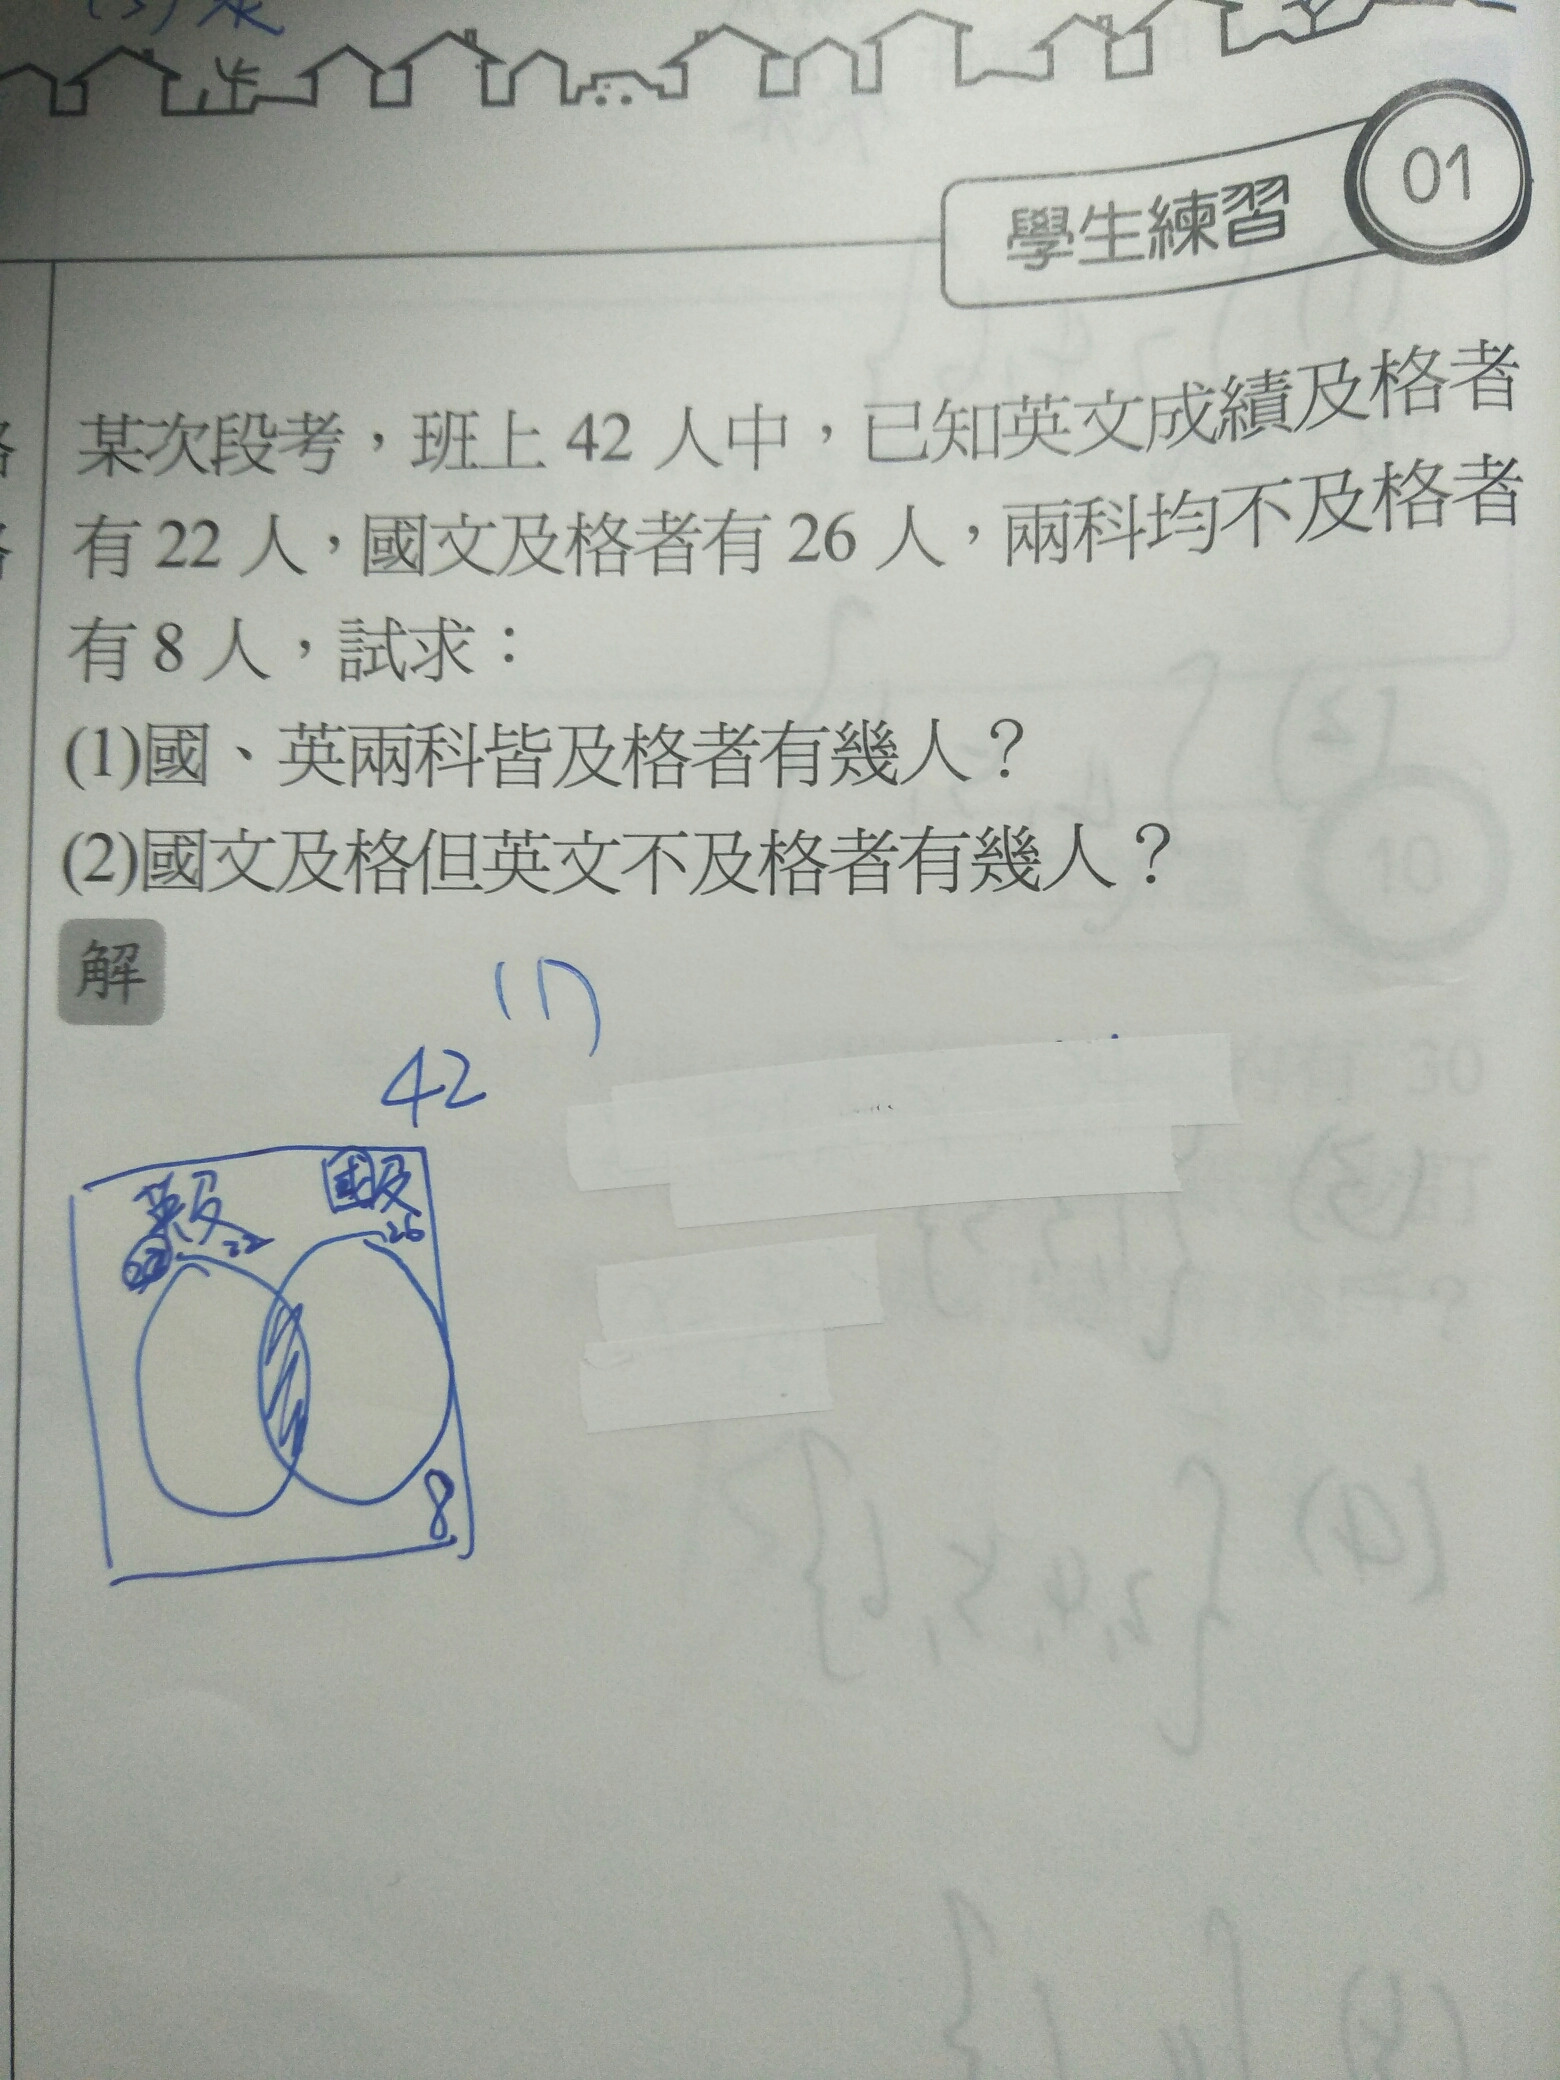 學生練習 01
某次段考，班上 42 人中，已知英文成績及格者
有 22 人，國文及格者有 26 人，兩科均不及格者
有 8 人，試求：
(1)國、英兩科皆及格者有幾人？
(2)國文及格但英文不及格者有幾人？
解
(1)
42
英及 國及
22 26
8